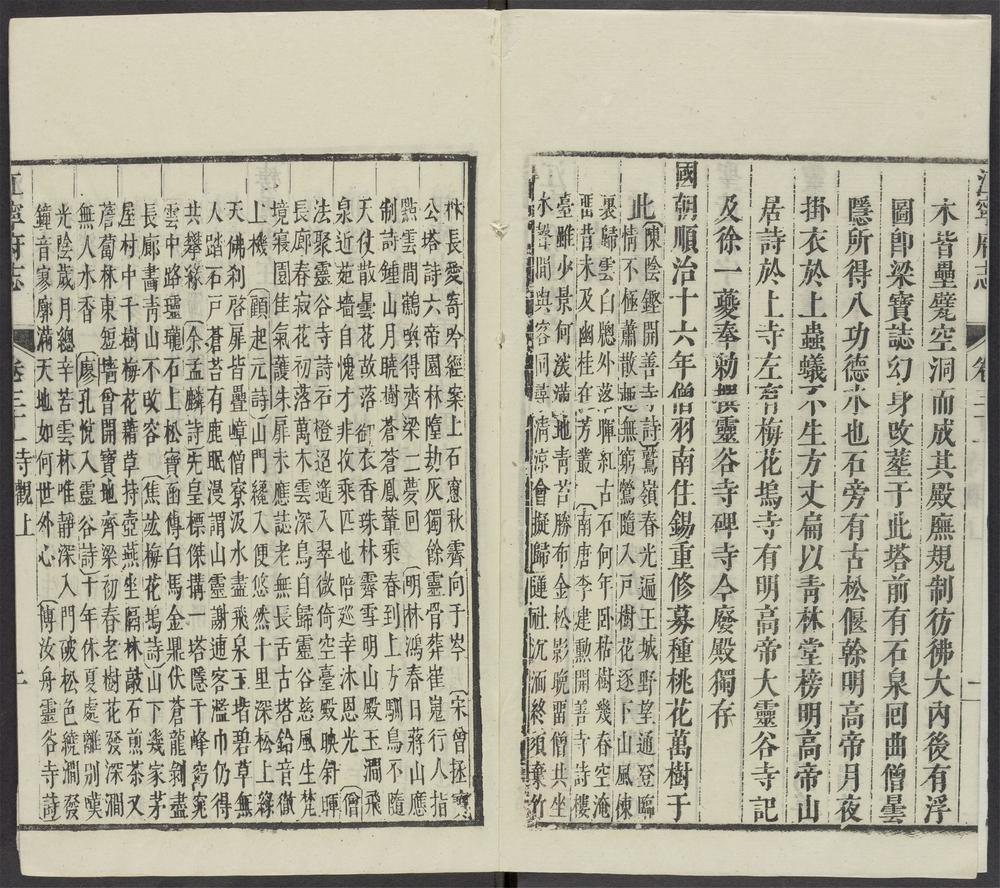 江寧府志 卷三十一
木皆壘甃空洞而成其殿廡規制彷彿大內後有浮
圖卽梁寶誌幻身改塟于此塔前有石泉囘曲僧曇
隱所得八功德水也石旁有古松偃榦明高帝月夜
掛衣於上蟲蟻不生方丈扁以靑林堂榜明高帝山
居詩於上寺左有梅花塢寺有明高帝大靈谷寺記
及徐一夔奉勅撰靈谷寺碑寺今廢殿獨存
國朝順治十六年僧羽南住錫重修募種桃花萬樹于
此〔陳陰鏗開善寺詩〕鷲嶺春光遍王城野望通登臨
情不極蕭散趣無窮鶯隨入戶樹花逐下山風棟
裏歸雲白牕外落暉紅古石何年卧枯樹幾春空淹
畱昔未及幽桂在芳叢〔南唐李建勳開善寺詩〕樓
臺雖少景何深滿地靑苔勝布金松影晚畱僧共坐
水聲閒與客同尋淸涼會擬歸蓮社沉湎終須棄竹
林長愛寄吟經案上石窻秋霽向千岑〔宋曾拯寶
公塔詩〕六帝園林墮劫灰獨餘靈骨葬崔嵬行人指
點雲間鶴喚得齊梁一夢囘〔明林鴻春日蔣山應
制詩〕鍾山月曉樹蒼蒼鳳輦乘春到上方馴鳥不隨
天仗散曇花故落御衣香珠林霽雪明山殿玉澗飛
泉近苑墻自愧才非枚乘匹也陪巡幸沐恩光〔僧
法聚靈谷寺詩〕石橙迢遙入翠微倚空臺殿映斜暉
長廊春寂花初落古木雲深鳥自歸靈谷慈風生梵
境寢園佳氣護朱扉未應誌老無長舌古塔鈴音徹
上機〔顧起元詩〕山門纔入便悠然十里深松上綠
天佛刹啓扉皆疊嶂僧寮汲水盡飛泉玉堦碧草無
人踏石戶蒼苔有鹿眠漫謂山靈謝逋客濫巾仍得
共攀緣〔余孟麟詩〕先皇標傑搆一塔隱千峰窈窕
雲中路瓏瓏石上松寶函傳白馬金鼎伏蒼龍剝盡
長廊畵靑山不改容〔焦竑梅花塢詩〕山下幾家茅
屋村中千樹梅花藉草持壺燕坐隔林敲石煎茶又
薝蔔林東短牆曾開寶地齊梁初春老樹花發深澗
無人水香〔廖孔悅入靈谷詩〕十年休夏處離別嘆
光陰歲月總辛苦雲林唯靜深入門破松色繞澗發
鐘音寥廓滿天地如何世外心〔傅汝舟靈谷寺詩
江寧府志 卷三十一 寺觀上 二